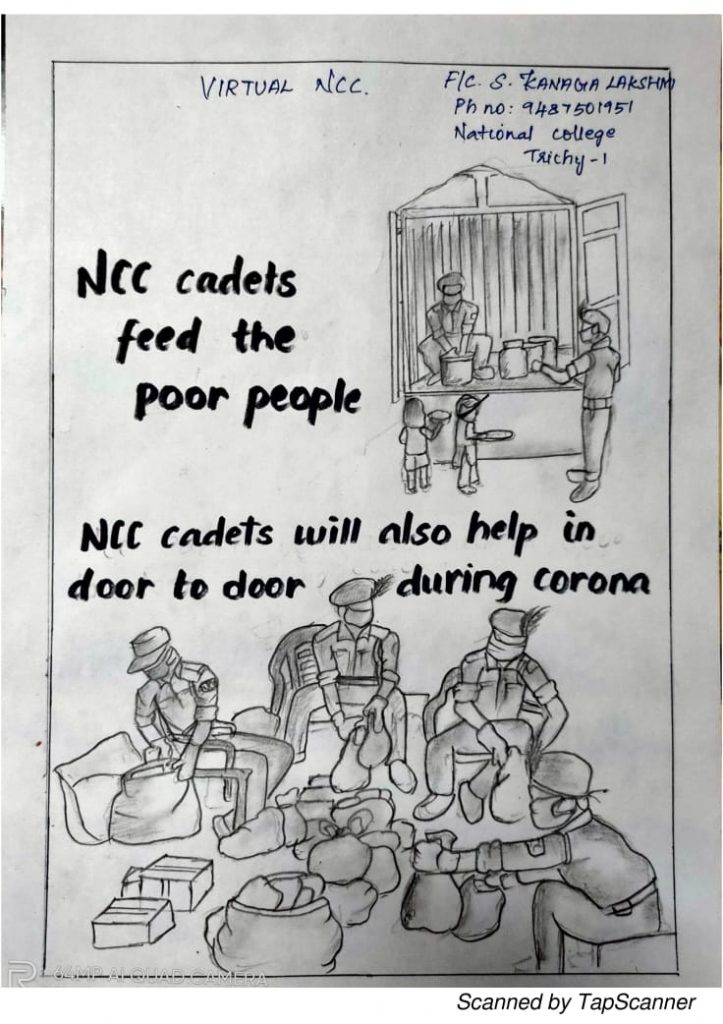 VIRTUAL NCC.
F/C. S. KANAGA LAKSHMI
Ph no: 9487501951
National college
Trichy-1
NCC cadets
feed the
poor people
NCC cadets will also help in
door to door during corona
64MP AI QUAD CAMERA
Scanned by TapScanner